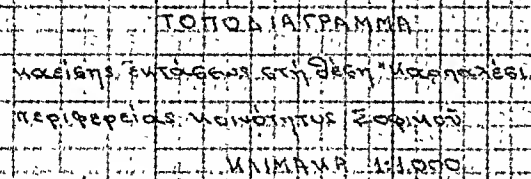 ΤΟΠΟΔΙΑΓΡΑΜΜΑ
ἐκτάσεως στή θέση
περιφερείας κοινότητος Σοφικοῦ
ΚΛΙΜΑΚΑ 1:1.000